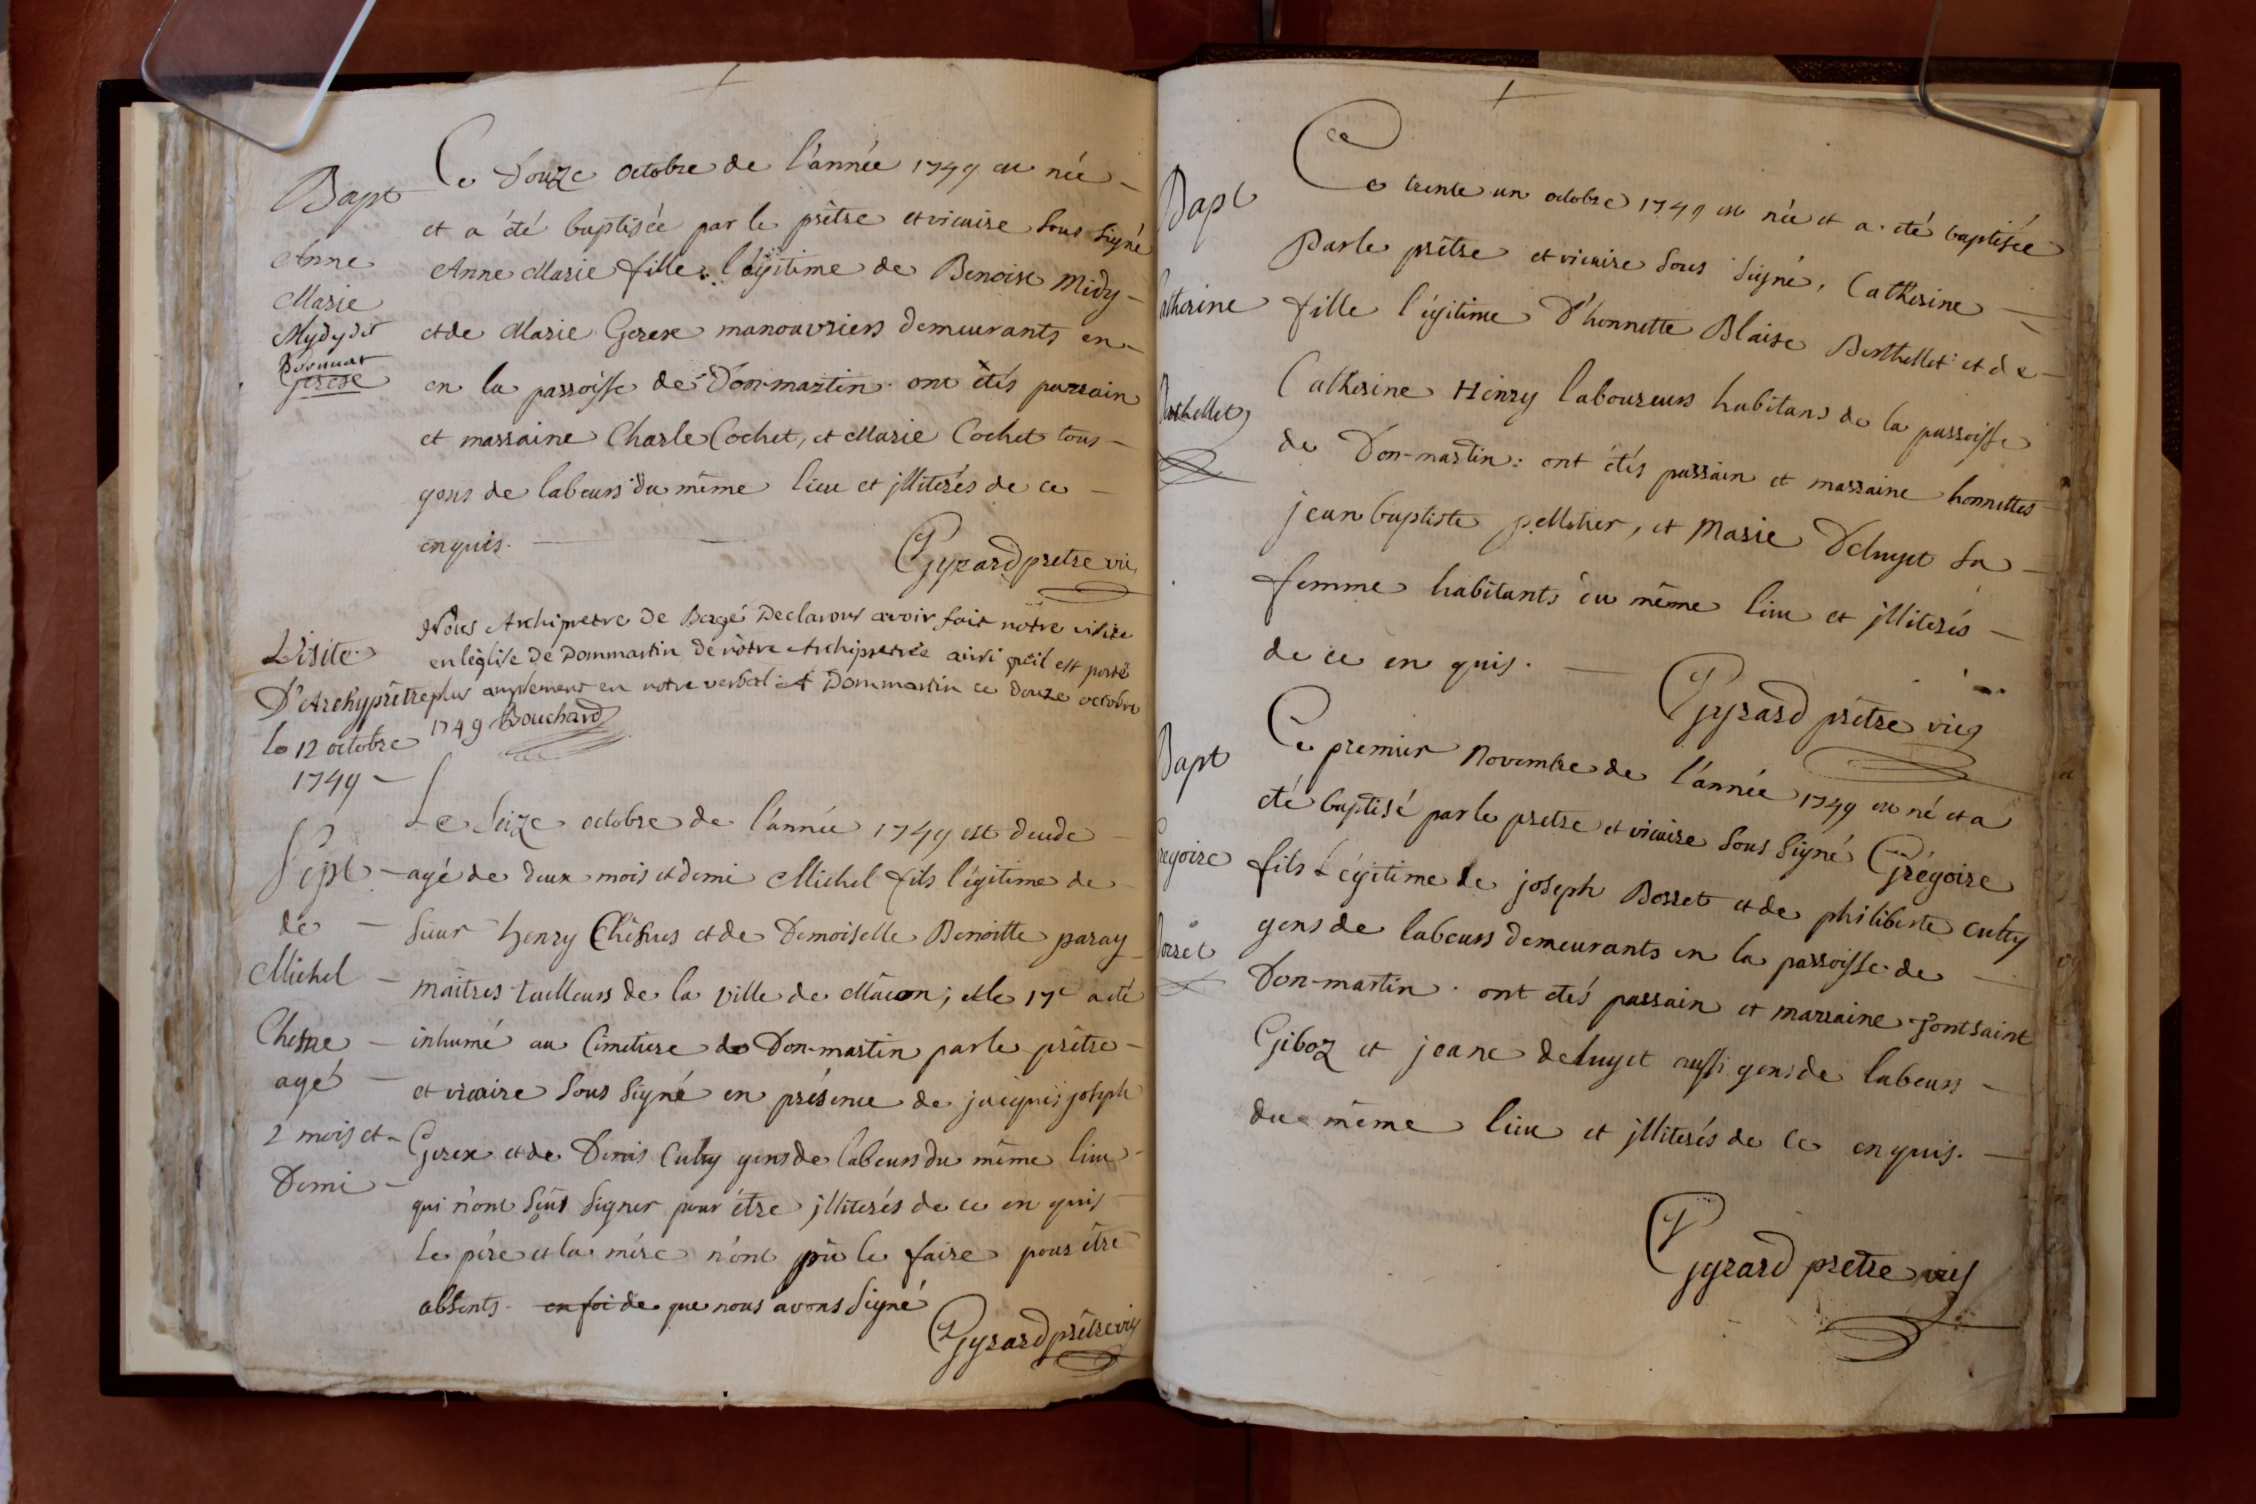 Bapt
Anne
Marie
Mydy dit
Gerese
Ce Douze octobre de l'année 1749 est née
et a été baptisée par le prêtre et vicaire sous signé
Anne Marie fille légitime de Benoist Midy
et de Marie Gerese manouvriers demeurants en
en la parroisse de Don-martin. ont étés parrain
et marraine Charle Cochet, et Marie Cochet tous
gens de labeurs du même lieu et jlliterés de ce
enquis.
Gyrard prêtre vic
Visite
D'Archyprêtre
le 12 octobre
1749
Nous Archiprêtre de Bagé Declarons avoir fait notre visite
en leglise de Dommartin de nôtre Archipretrée ainsi qu'il est porté
plus amplement en notre verbal. A Dommartin ce douze octobre
1749 Bouchard
Sept
de
Michel
Chesne
agé
2 mois et
Demi
Le Seize octobre de l'année 1749 est decede
agé de deux mois et demi Michel fils légitime de
sieur henry Chesnes et de Demoiselle Benoitte paray
maîtres tailleurs de la ville de Mâcon; et le 17e a été
inhumé au Cimetiere de Don-martin par le prêtre
et vicaire sous signé en présence de jacques joseph
Gerex et de Denis Cuthy gens de labeurs du même lieu
qui n'ont sçus signer pour être jlliterés de ce en quis
le pére et la mére n'ont pû le faire pour être
absents. en foi de que nous avons signé
Gyrard prêtre vic
Bapt
Catherine
Berthellet
Ce trente un octobre 1749 est née et a été baptisée
Par le prêtre et vicaire sous signé, Catherine
fille légitime d'honnette Blaise Berthellet et de
Catherine Henry laboureurs habitans de la parroisse
de Don-martin: ont étés parrain et marraine honnettes
jean baptiste pelletier, et Marie Deluyet sa
femme habitants du même lieu et jlliterés
de ce en quis.
Gyrard prêtre vic
Bapt
Gregoire
Borret
Ce premier Novembre de l'année 1749 est né et a
été baptisé par le pretre et vicaire sous signé Grégoire
fils Légitime de joseph Borret et de philiberte Cuthy
gens de labeurs demeurants en la parroisse de
Don-martin. ont étés parrain et marraine Pontsaint
Giboz et jeane deluyet aussi gens de labeurs
du même lieu et jlliterés de ce enquis.
Gyrard pretre vic